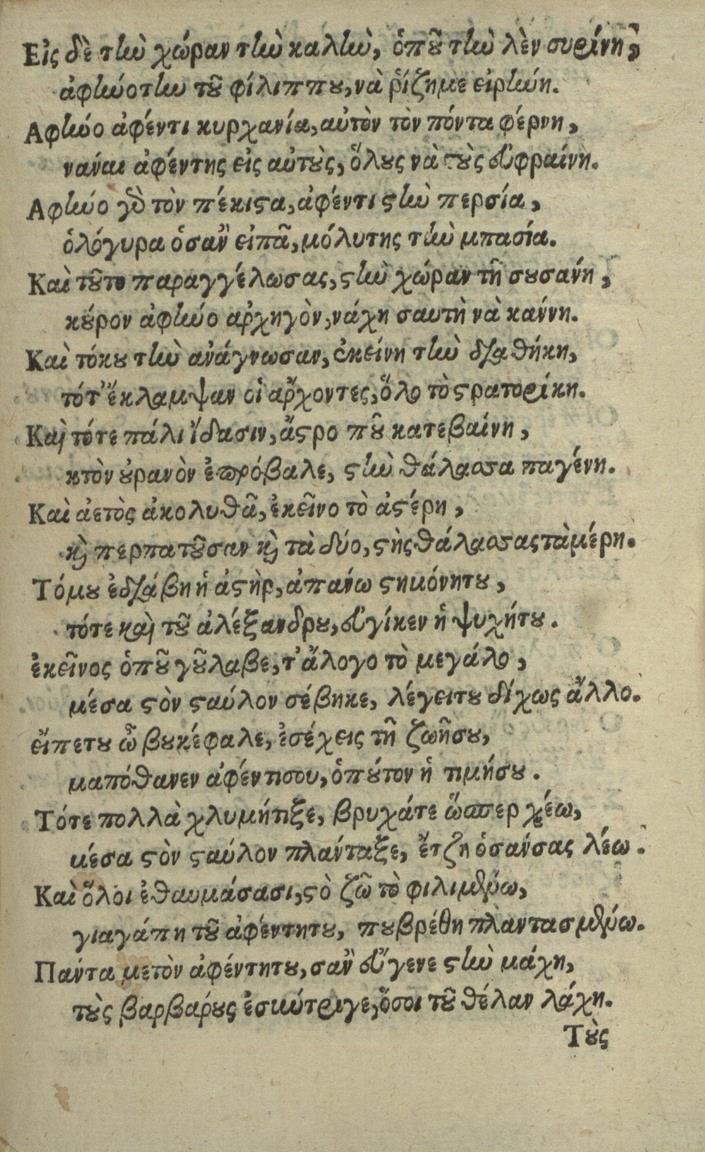 Εἰς δὲ τὴν χώραν τὴν καλὴν, ὁποῦ τὴν λὲν συρίνη,
ἀφήνοτην τοῦ φίλιππου, νὰ ῥίζημε εἰρήνη.
Αφήνο ἀφέντι κυρχανία, αὐτὸν τὸν πόντα φέρνη,
νάναι ἀφέντης εἰς αὐτοὺς, ὅλους νὰ τοὺς εὐφραίνη.
Αφήνο γοῦ τὸν πέκιστα, ἀφέντι στὴν περσία,
ὁλόγυρα ὁσαν εἰπᾶ, μόλυτης τὴν μπασία.
Καὶ τοῦτο παραγγέλωσας, στὴν χώραν τῆ σουσάνη,
κύρον ἀφήνο ἀρχηγὸν, νάχη σαυτὴ νὰ κάννη.
Καὶ τόκου τὴν ἀνάγνωσαν, ἐκείνη τὴν δζαθήκη,
τότ' ἔκλαμψαν οἱ ἄρχοντες, ὅλο τὸ στρατορίκη.
Καὶ τότε πάλι ἴδασιν, ἄστρο ποῦ κατεβαίνη,
κτὸν οὐρανὸν ἐπρόβαλε, στὴν θάλασσα παγένη.
Καὶ ἀετὸς ἀκολουθᾶ, ἐκεῖνο τὸ ἀστέρη,
καὶ περπατοῦσαν καὶ τὰ δύο, στῆς θάλασσας τὰ μέρη.
Τόμου ἐδζάβη ἡ ἀστὴρ, ἀπάνω στημόνητου,
τότε καὶ τοῦ ἀλέξανδρου, εὐγίκεν ἡ ψυχήτου.
ἐκεῖνος ὁποῦ γοῦλαβε, τ' ἄλογο τὸ μεγάλο,
μέσα στὸν σταύλον σέβηκε, λέγειτου δίχως ἄλλο.
εἴπετου ὦ βουκέφαλε, ἐσέχεις τῆ ζωῆσου,
μαπόθανεν ἀφέντισου, ὁπούτον ἡ τιμήσου.
Τότε πολλὰ χλυμήτιξε, βρυχάτε ὥσπερ χέω,
μέσα στὸν σταύλον πλάνταξε, ἔτζη ὁσάνσας λέω.
Καὶ ὅλοι ἐθαυμάσασι, στὸ ζῶ τὸ φιλιμένω,
γιαγάπη τοῦ ἀφέντητου, πουβρέθη πλαντασμένω.
Πάντα μετὸν ἀφέντητου, σὰν εὔγενε στὴν μάχη,
τοὺς βαρβάρους ἐσυνήτριγε, ὅσοι τοῦ θέλαν λάχη.
Τοὺς